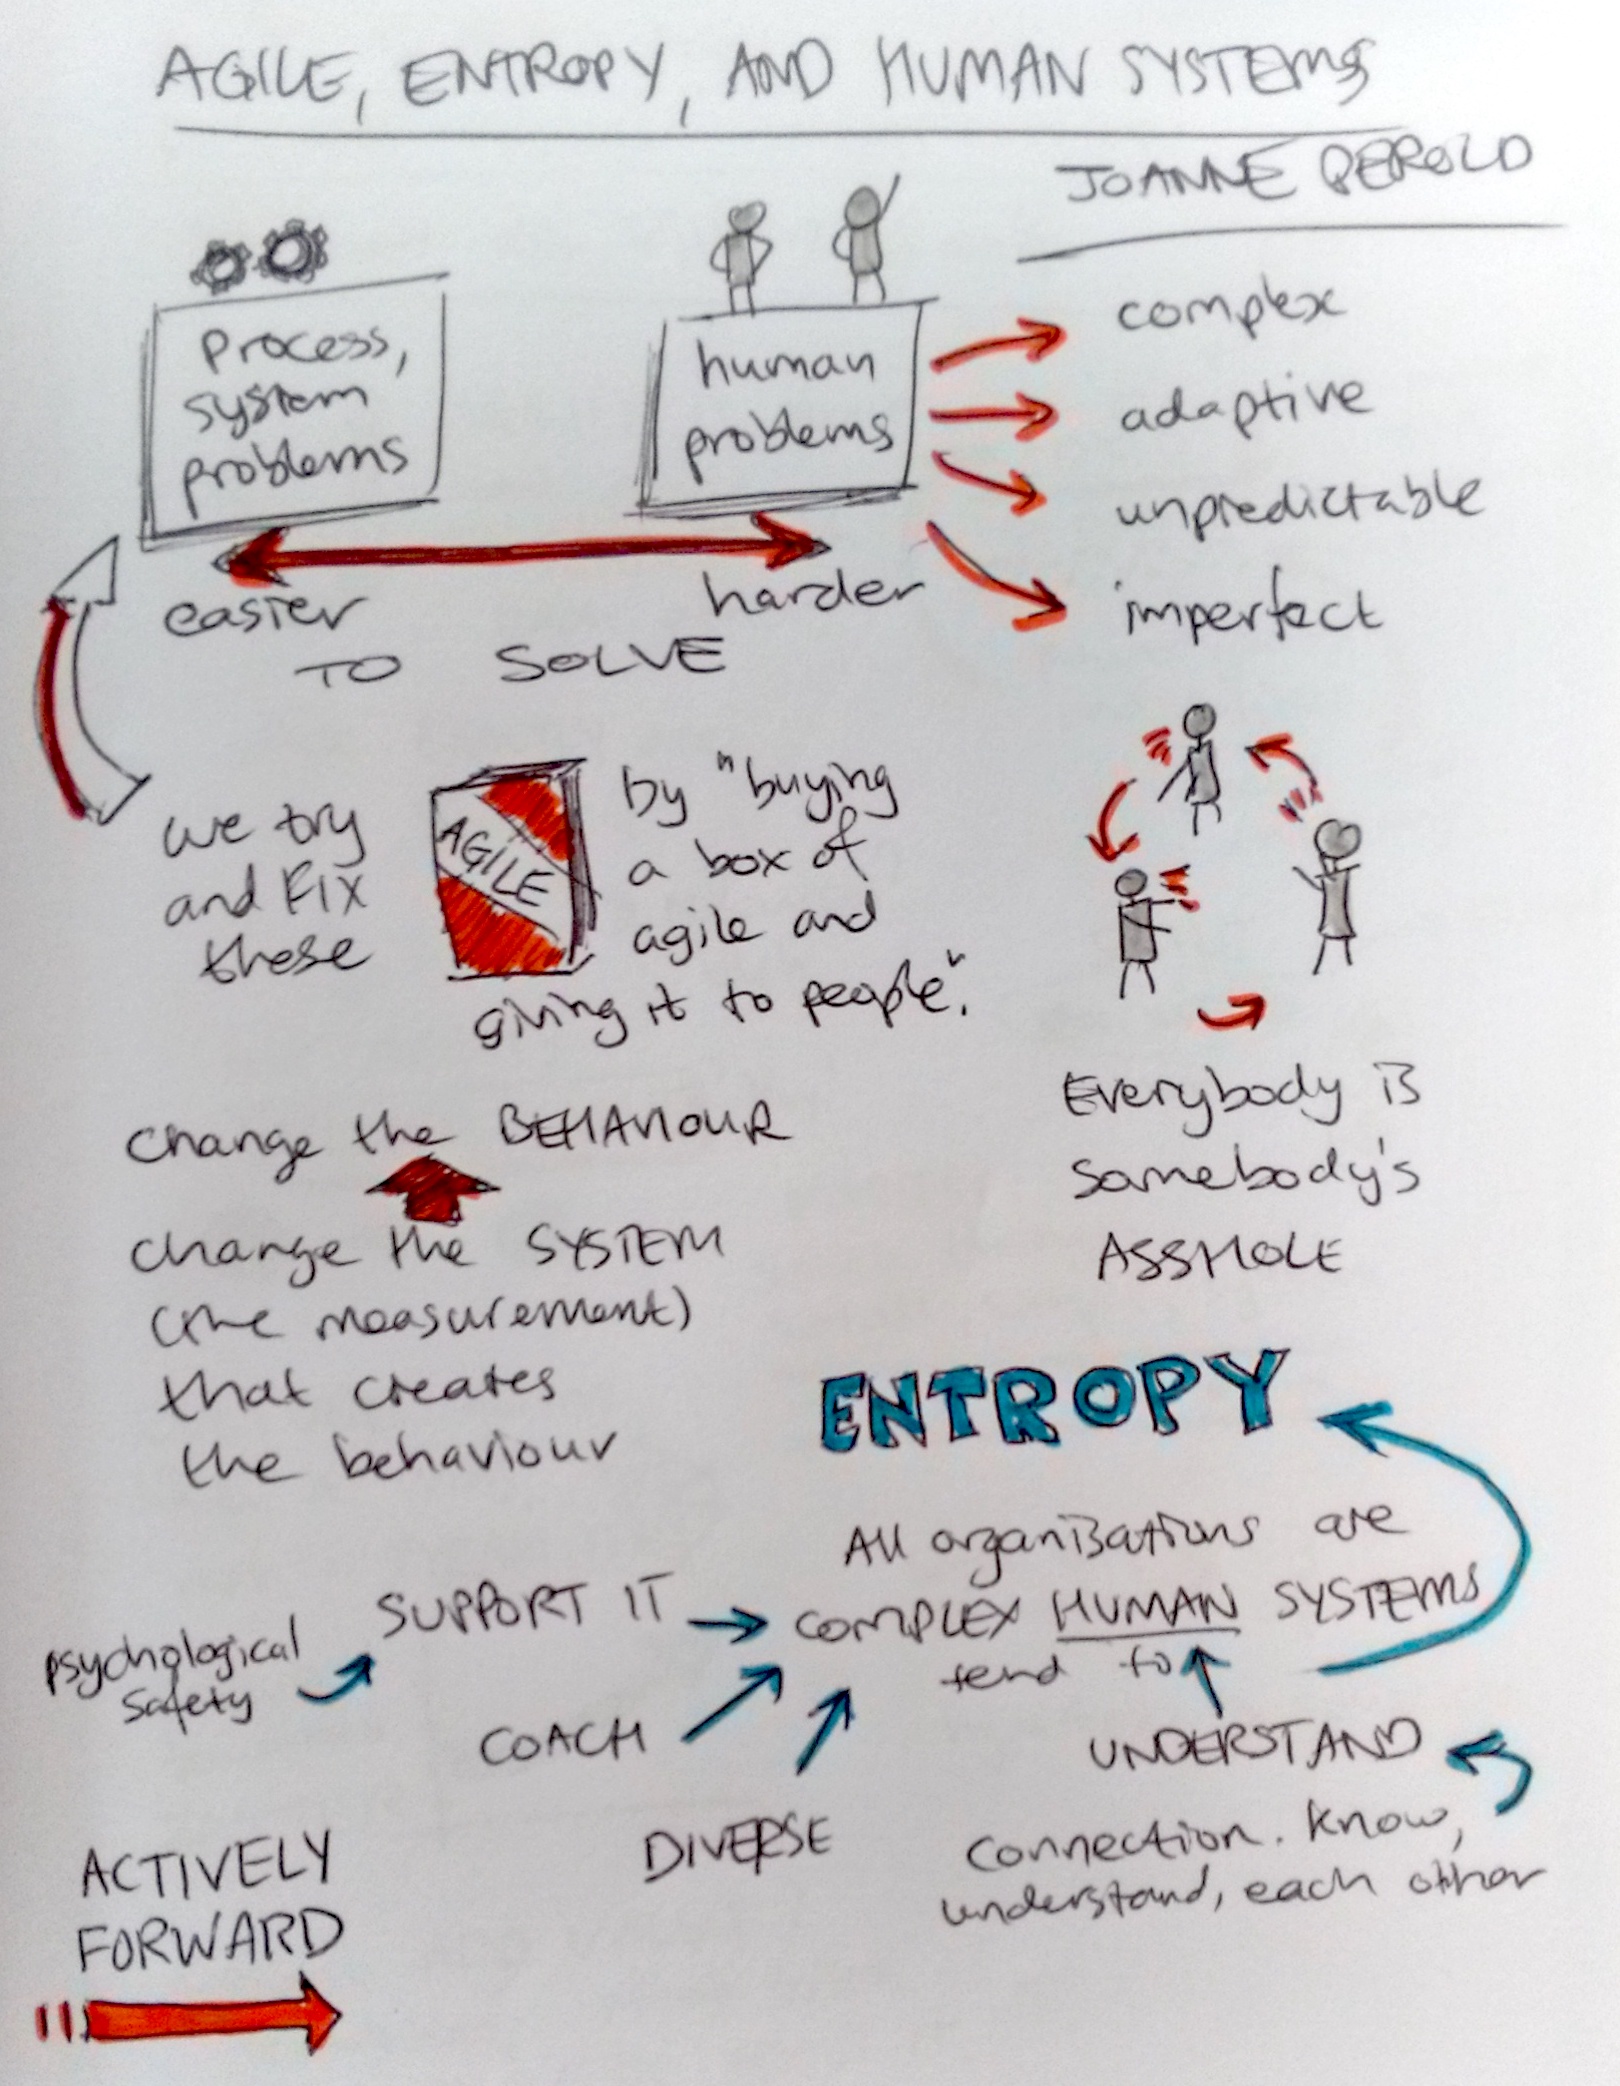 AGILE, ENTROPY, AND HUMAN SYSTEMS
JOANNE PEROLD
process,
system
problems
human
problems
complex
adaptive
unpredictable
imperfect
easier
harder
TO SOLVE
we try
and FIX
these
AGILE
by "buying
a box of
agile and
giving it to people".
Everybody is
somebody's
ASSHOLE
change the BEHAVIOUR
change the SYSTEM
(the measurement)
that creates
the behaviour
ENTROPY
All organisations are
COMPLEX HUMAN SYSTEMS
tend to
SUPPORT IT
psychological
safety
COACH
DIVERSE
UNDERSTAND
connection. Know,
understand, each other
ACTIVELY
FORWARD